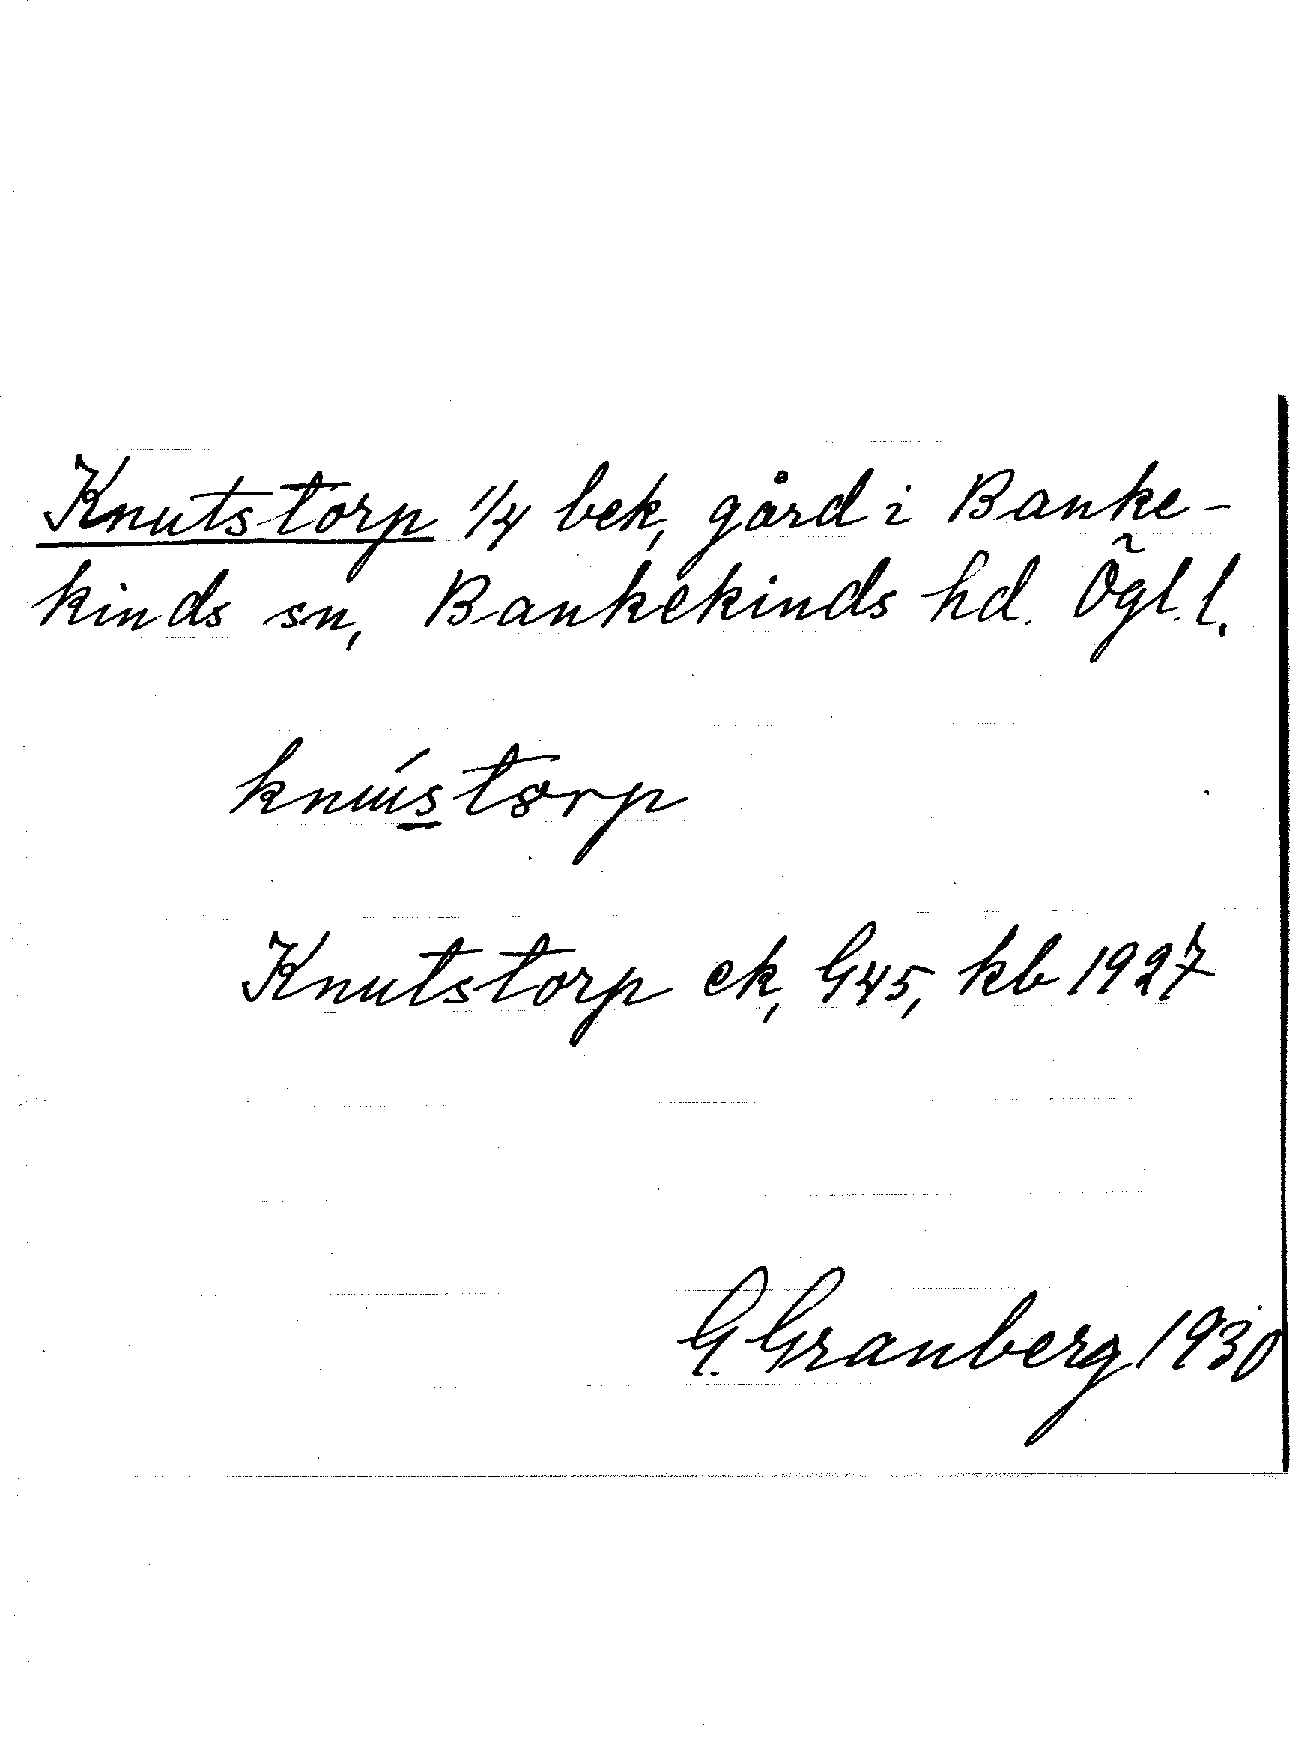 Knutstorp 1/4 bek, gård i Banke-
kinds sn, Bankekinds hd. Ögl. l.
Knutstorp ek, G45, kb 1927
G. Granberg 1930